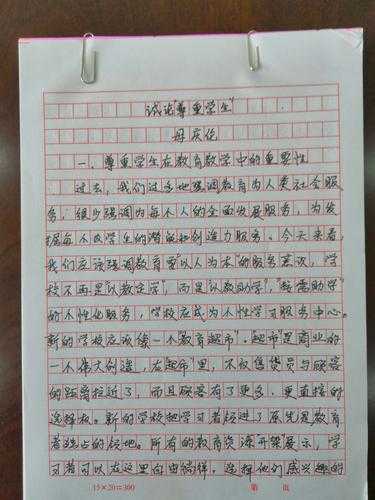 试论尊重学生"
毋庆伦
一、尊重学生在教育教学中的重要性
过去,我们过多地强调教育为人类社会服
务,很少强调为每个人的全面发展服务,为发
掘每个学生的潜能和创造力服务。今天来看,
我们应该强调教育要以人为本的服务意识,学
校不再是"以教定学",而是"以教助学","按需助学"
的个性化服务,学校应成为个性学习服务中心。
新的学校应该像一个"教育超市"。"超市"是商业的
一个伟大创造,在"超市"里,不仅售货员与顾客
的距离拉近了,而且顾客有了更多、更直接的
选择权。新的学校把学习者领进了原先是教育
者独占的领地。所有的教育资源"开架"展示,学
习者可以在这里自由徜徉,选择他们感兴趣的
15×20=300 第 页